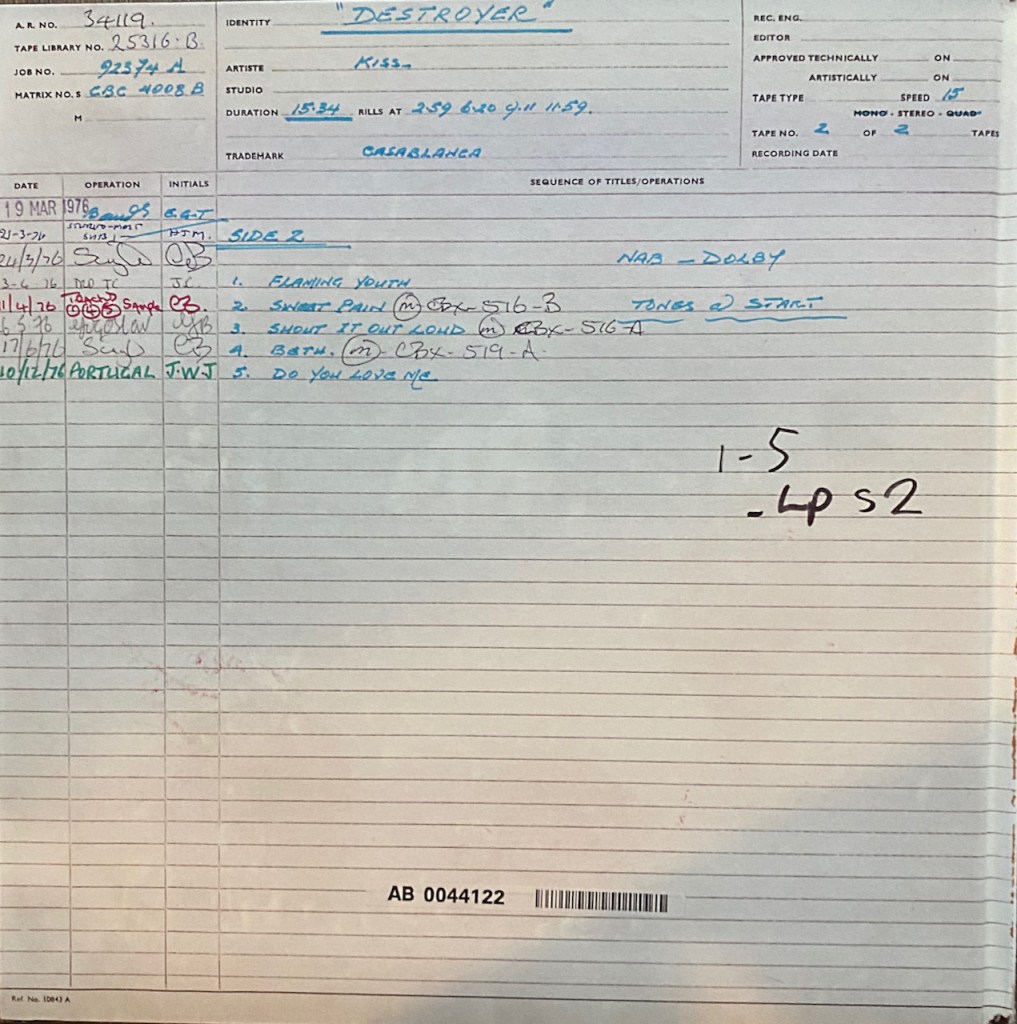 A. R. NO. 34119.
TAPE LIBRARY NO. 25316·B
JOB NO. 92374 A
MATRIX NO. S CBC 4008 B
M
IDENTITY "DESTROYER"
ARTISTE KISS
STUDIO
DURATION 15·34 RILLS AT 2·59 6·20 9·11 11·59.
TRADEMARK CASABLANCA
REC. ENG.
EDITOR
APPROVED TECHNICALLY ON
ARTISTICALLY ON
TAPE TYPE SPEED 15
MONO - STEREO - QUAD
TAPE NO. 2 OF 2 TAPES
RECORDING DATE
DATE OPERATION INITIALS SEQUENCE OF TITLES/OPERATIONS
19 MAR 1976
21-3-76 H.J.M. SIDE 2
24/3/76 NAB - DOLBY
3-4-76 J.C. 1. FLAMING YOUTH
1/4/76 ①④⑤ Sample CB. 2. SWEET PAIN (m) CBX-516-B TONES @ START
3. SHOUT IT OUT LOUD (m) CBX-516-A
17/6/76 CB 4. BETH. (m) - CBX-519-A.
10/12/76 PORTUGAL J.W.J 5. DO YOU LOVE ME
1-5
- LP S2
AB 0044122
Ref. No. 10843 A